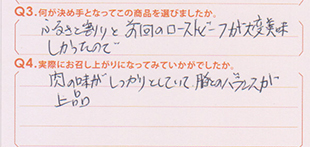 Q3.何が決め手となってこの商品を選びましたか。
ふるさと割りと 前回のローストビーフが大変美味
しかったので
Q4.実際にお召し上がりになってみていかがでしたか。
肉の味がしっかりとしていて 脂とのバランスが
上品